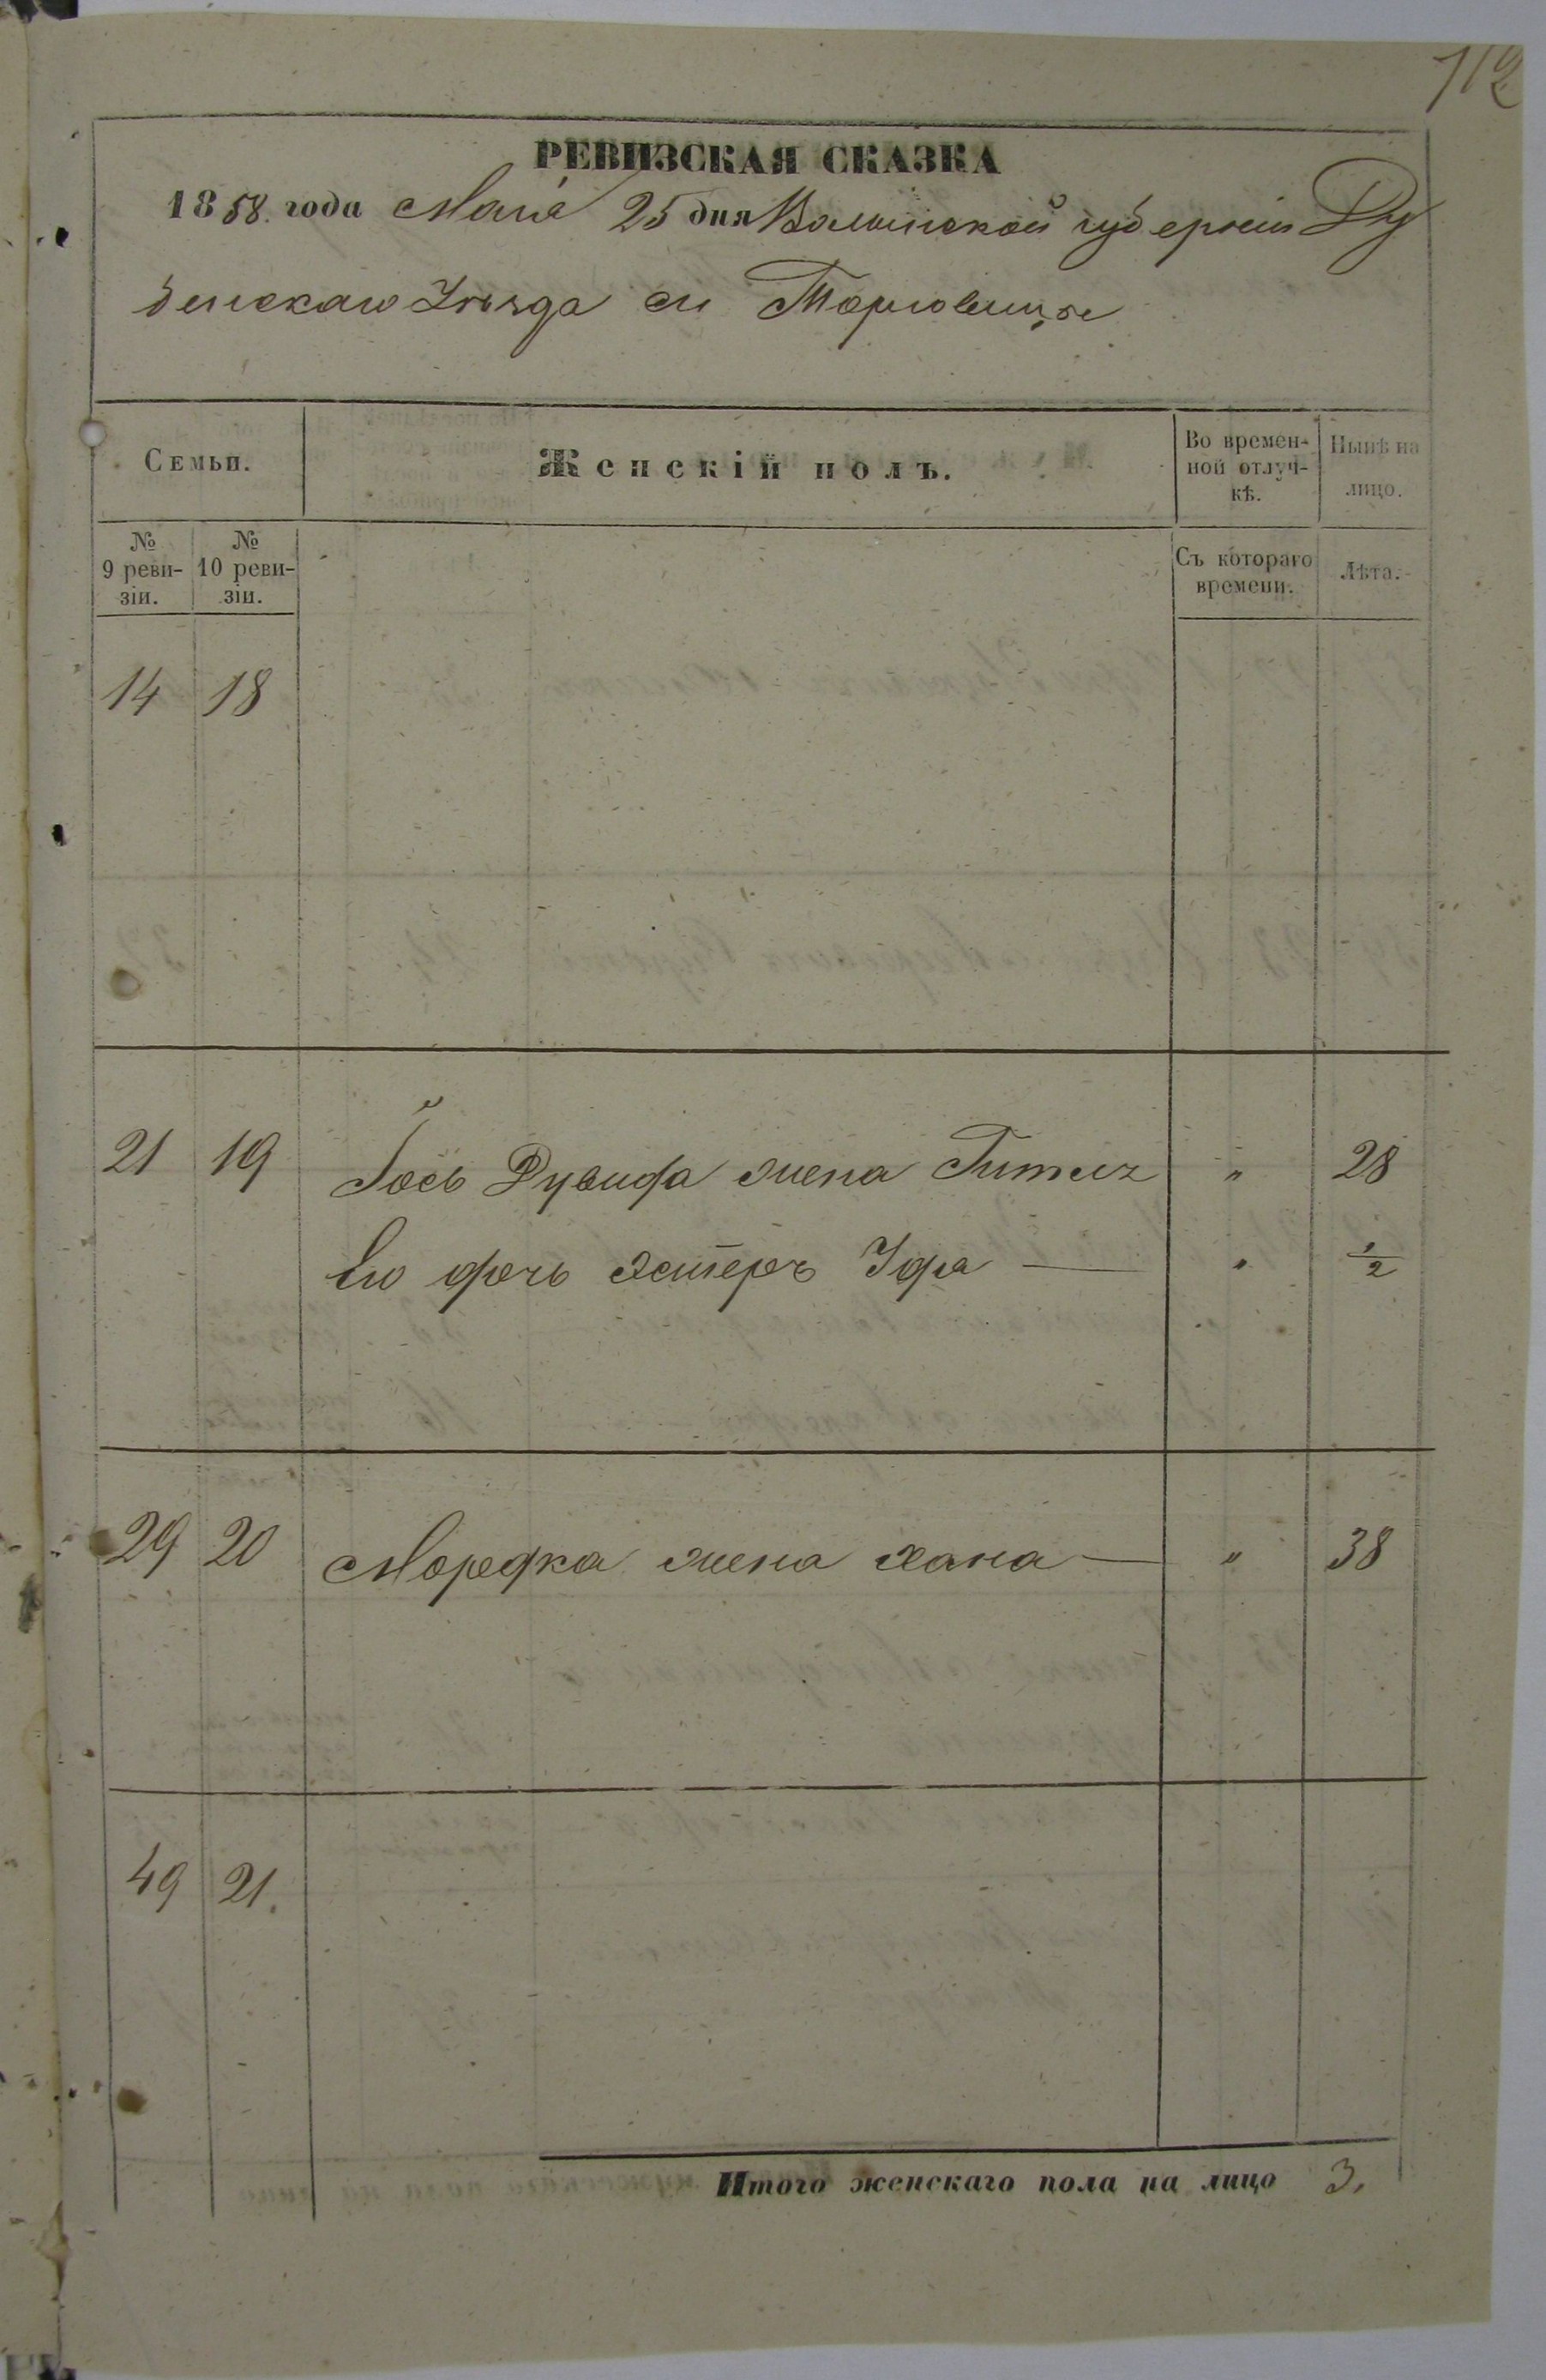 112
РЕВИЗСКАЯ СКАЗКА
1858. года Маія 25 дня Волынской губерніи Ду
бенскаго Уѣзда м Торговицѣ
Семьи.
Женскій полъ.
Во времен-
ной отлуч-
кѣ.
Нынѣ на
лицо.
№
9 реви-
зіи.
№
10 реви-
зіи.
Съ котораго
времени.
Лѣта.
14 18
21 19 Іось Дувида жена " 28
Его дочь Эстеръ " 1/2
29 20 Мордка жена Хана — " 38
49 21.
Итого женскаго пола на лицо 3.